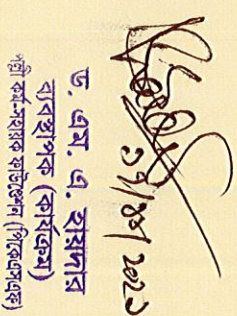 ড. এম. এ. হায়দার
ব্যবস্থাপক (কার্যক্রম)
পল্লী কর্ম-সহায়ক ফাউন্ডেশন (পিকেএসএফ)